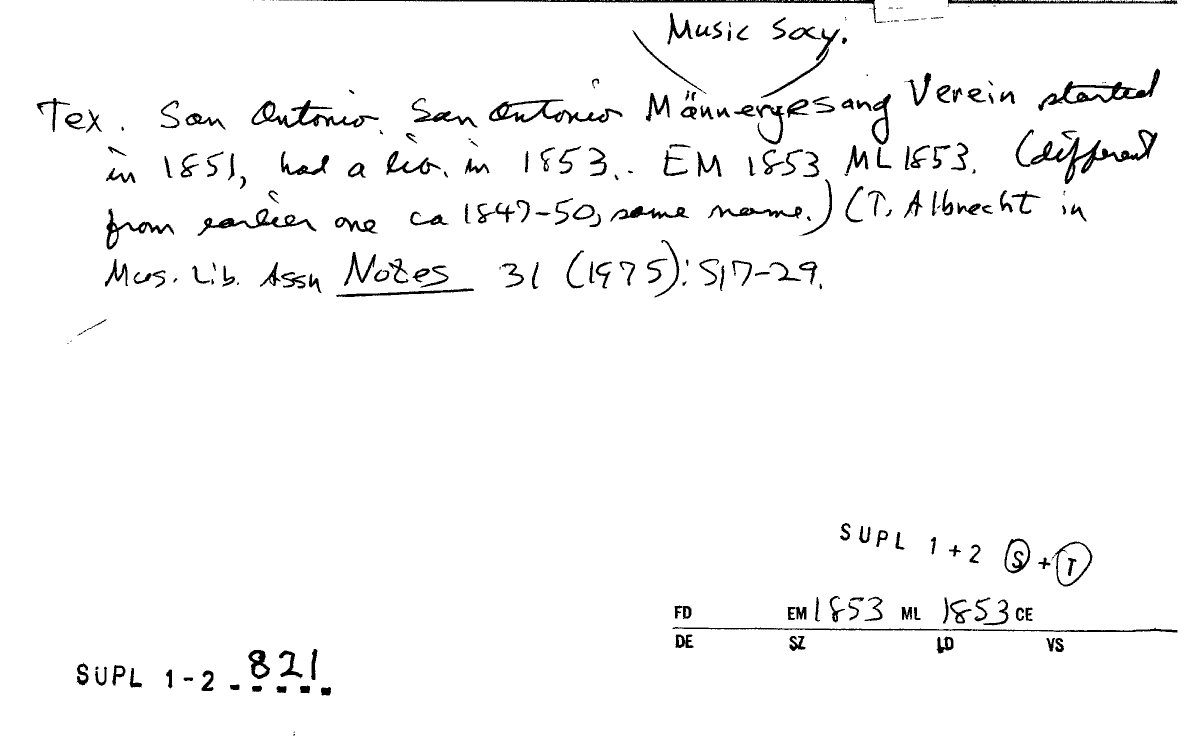 Music Socy.
Tex. San Antonio. San Antonio Männergesang Verein started
in 1851, had a lib. in 1853.. EM 1853 ML 1853. (different
from earlier one ca 1847-50, same name.) (T. Albrecht in
Mus. Lib. Assn Notes 31 (1975): 517-29.
SUPL 1+2 S + T
FD EM 1853 ML 1853 CE
DE SZ LD VS
SUPL 1-2 821